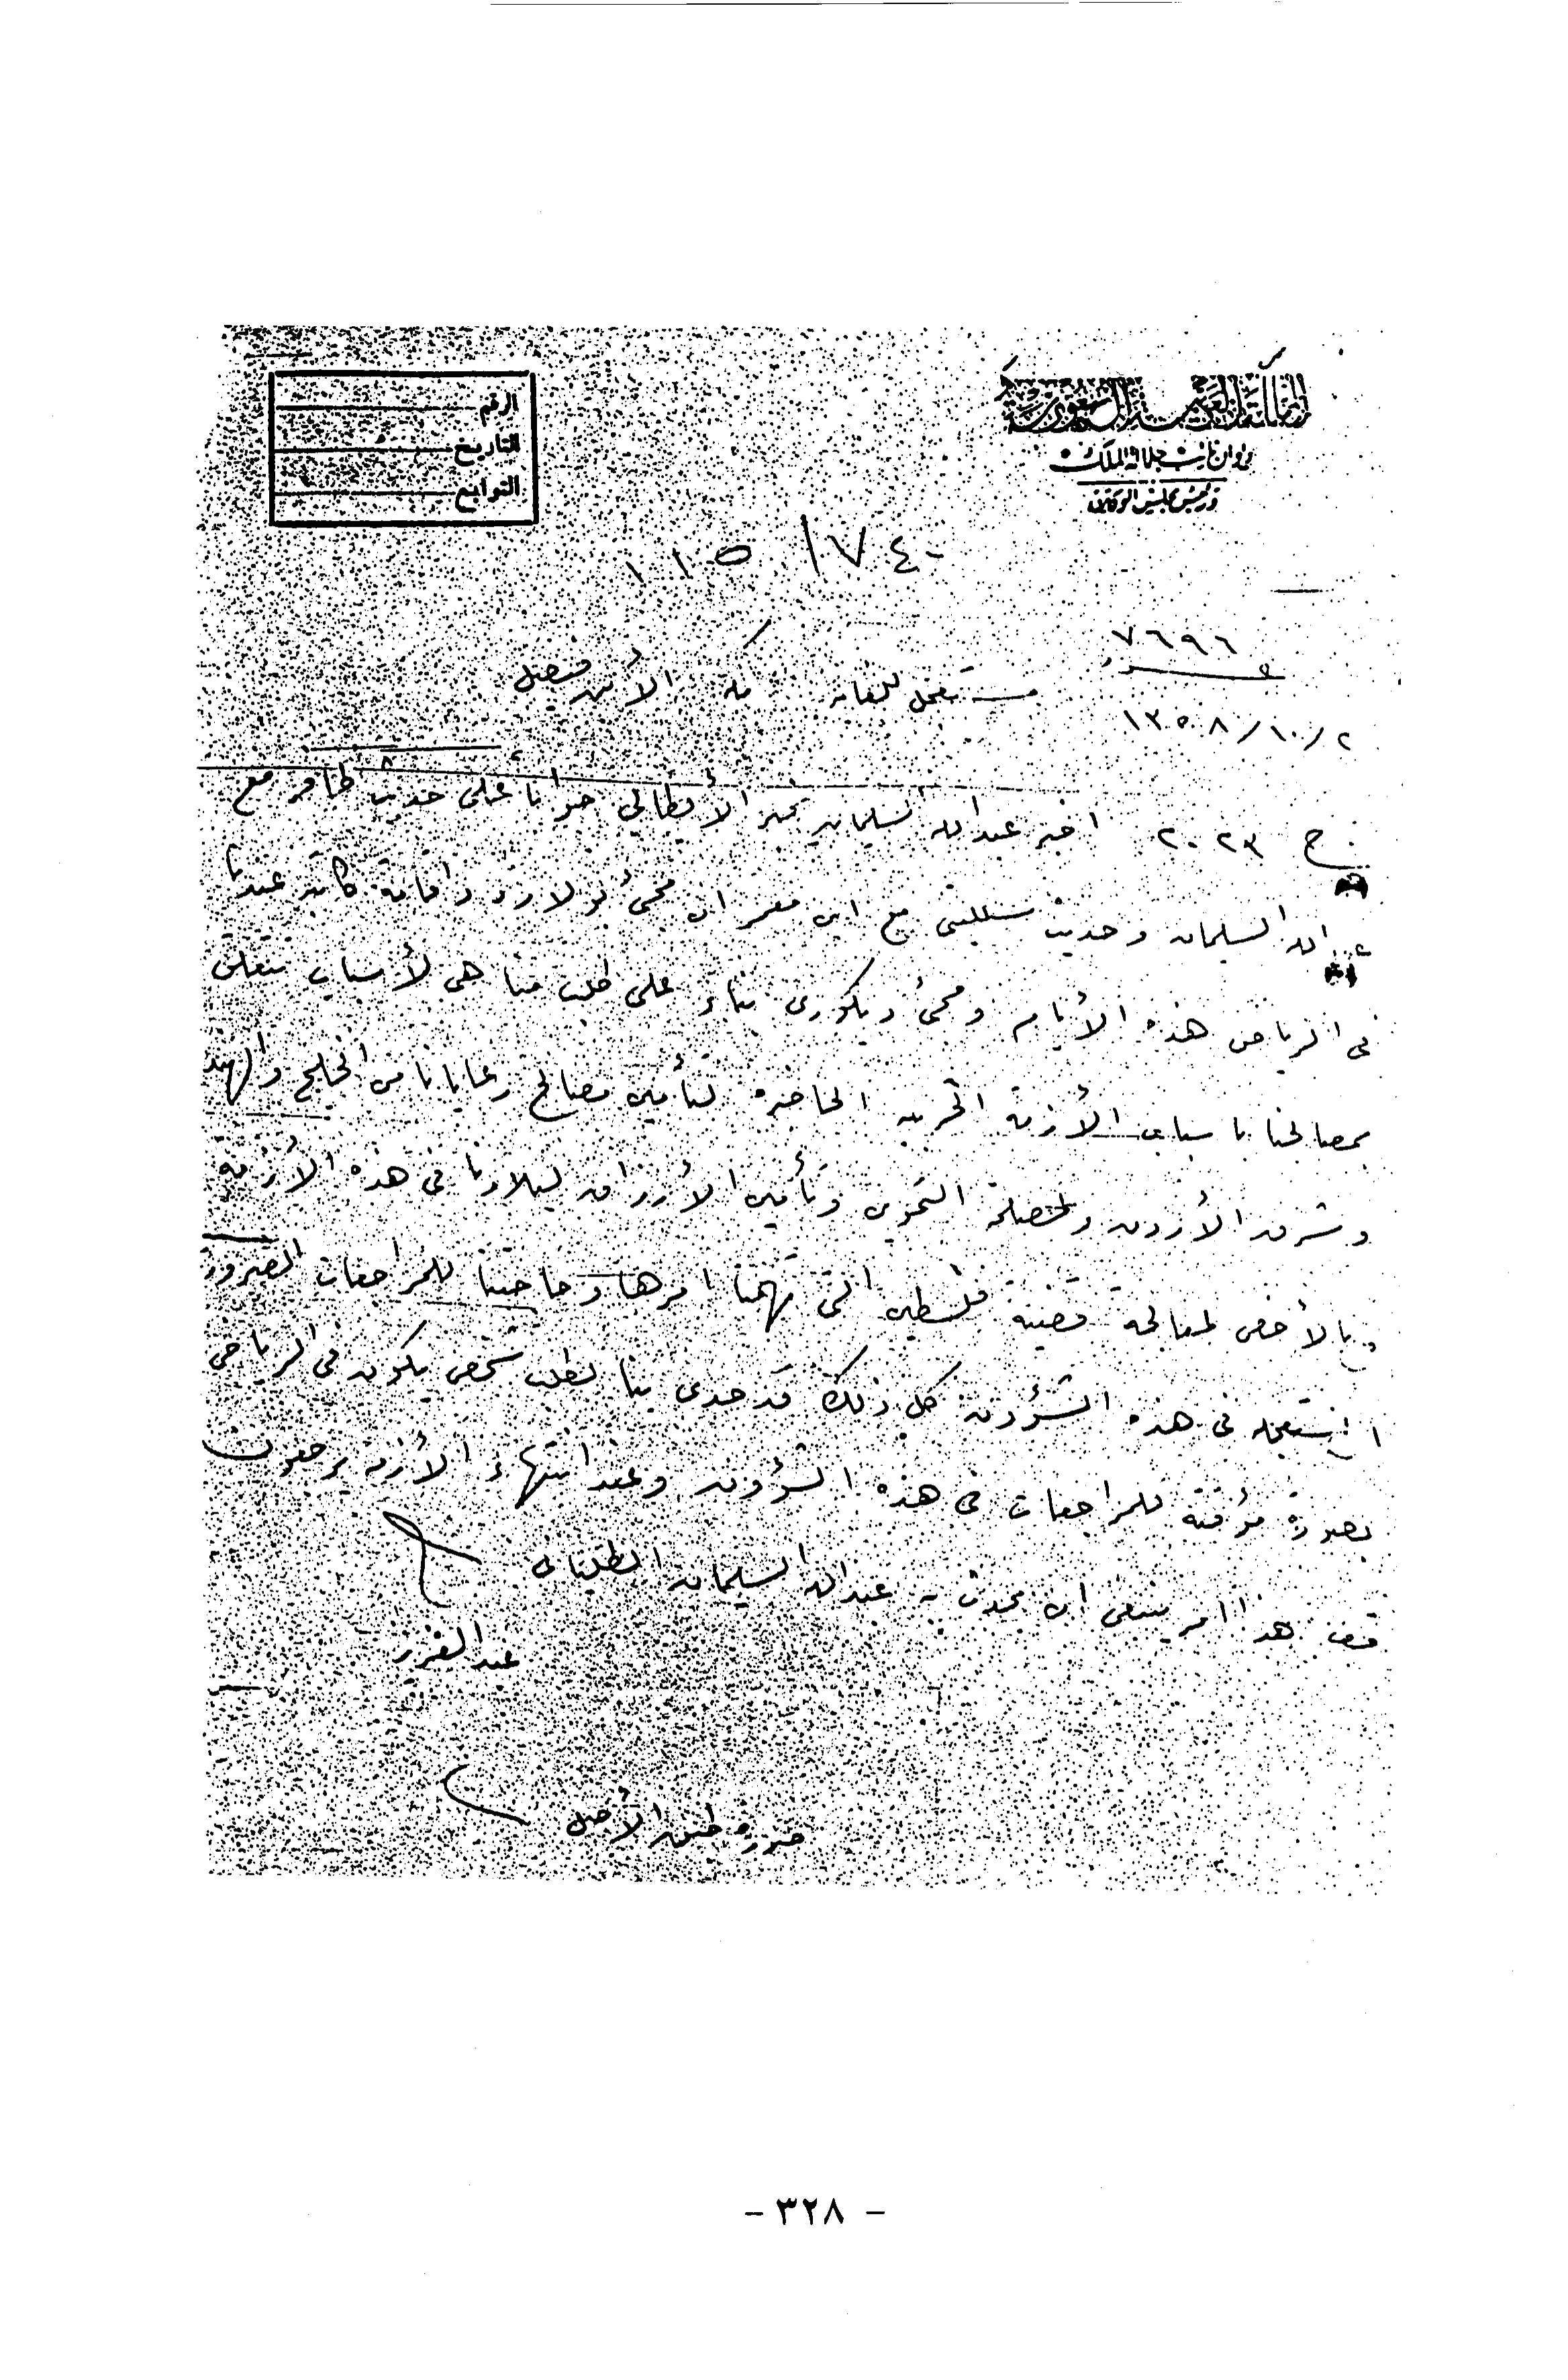 المملكة العربية السعودية
ديوان نائب جلالة الملك
ورئيس مجلس الوكلاء
الرقم
التاريخ
التوابع
١١٥ / ٧٤٠
٧٦٩٦
مستعجل للغاية مكة الأمير فيصل
١٣٥٨/١٠/٢
ج ٢٠٢٣ اخبر عبدالله السليمان يخبر الأيطالي جواباً على حديث ظافر مع
عبدالله السليمان وحديث سيلليتي مع ابن معمر ان مجئ لولاردو واقامة كاتبه عندنا
في الرياض هذه الأيام ومجئ ديكوري بناءً على طلب منا هي لأسباب تتعلق
بمصالحنا باسباب الأزمة الحربية الحاضرة لتأمين مصالح رعايانا من الخليج والهند
وشرق الأردن ولمصلحة التموين وتأمين الأرزاق لبلادنا في هذه الأزمة
وبالأخص لمعالجة قضية فلسطين التي يهمنا امرها وحاجتنا للمراجعات الضرورية
المستعجلة في هذه الشؤون كل ذلك قد حدى بنا لطلب شخص يكون في الرياض
بصورة مؤقتة للمراجعات في هذه الشؤون وعند انتهاء الأزمة يرجعون
قف هذا امر ينبغي ان يحدث به عبدالله السليمان الطليناني
عبدالعزيز
صورة طبق الأصل
- ٣٢٨ -